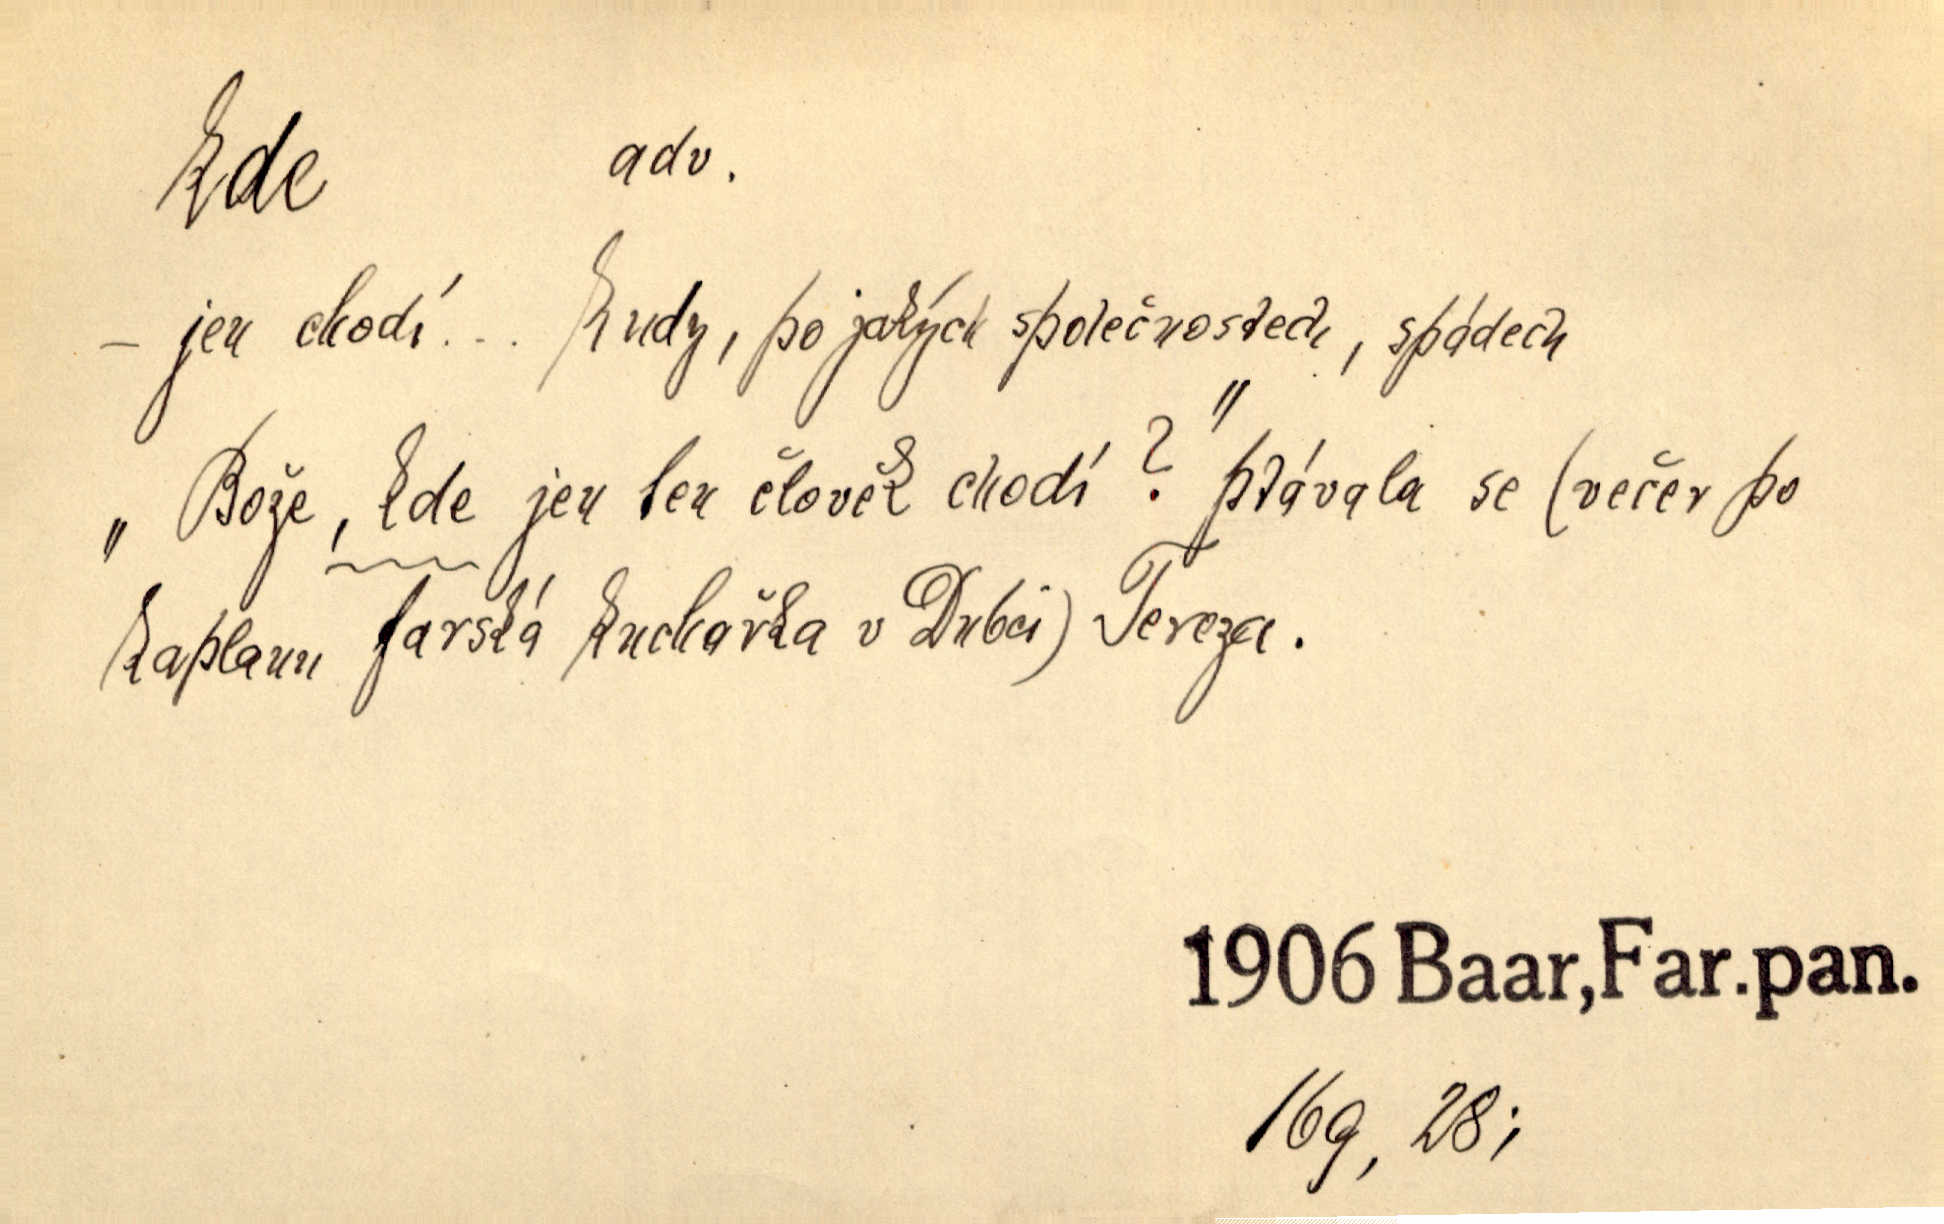 kde adv.
– jen chodí... kudy, po jakých společnostech, spádech
„Bože, kde jen ten člověk chodí?" ptávala se (večer po
kaplanu farská kuchařka v Dubci) Tereza.
1906 Baar, Far. pan.
169, 28;